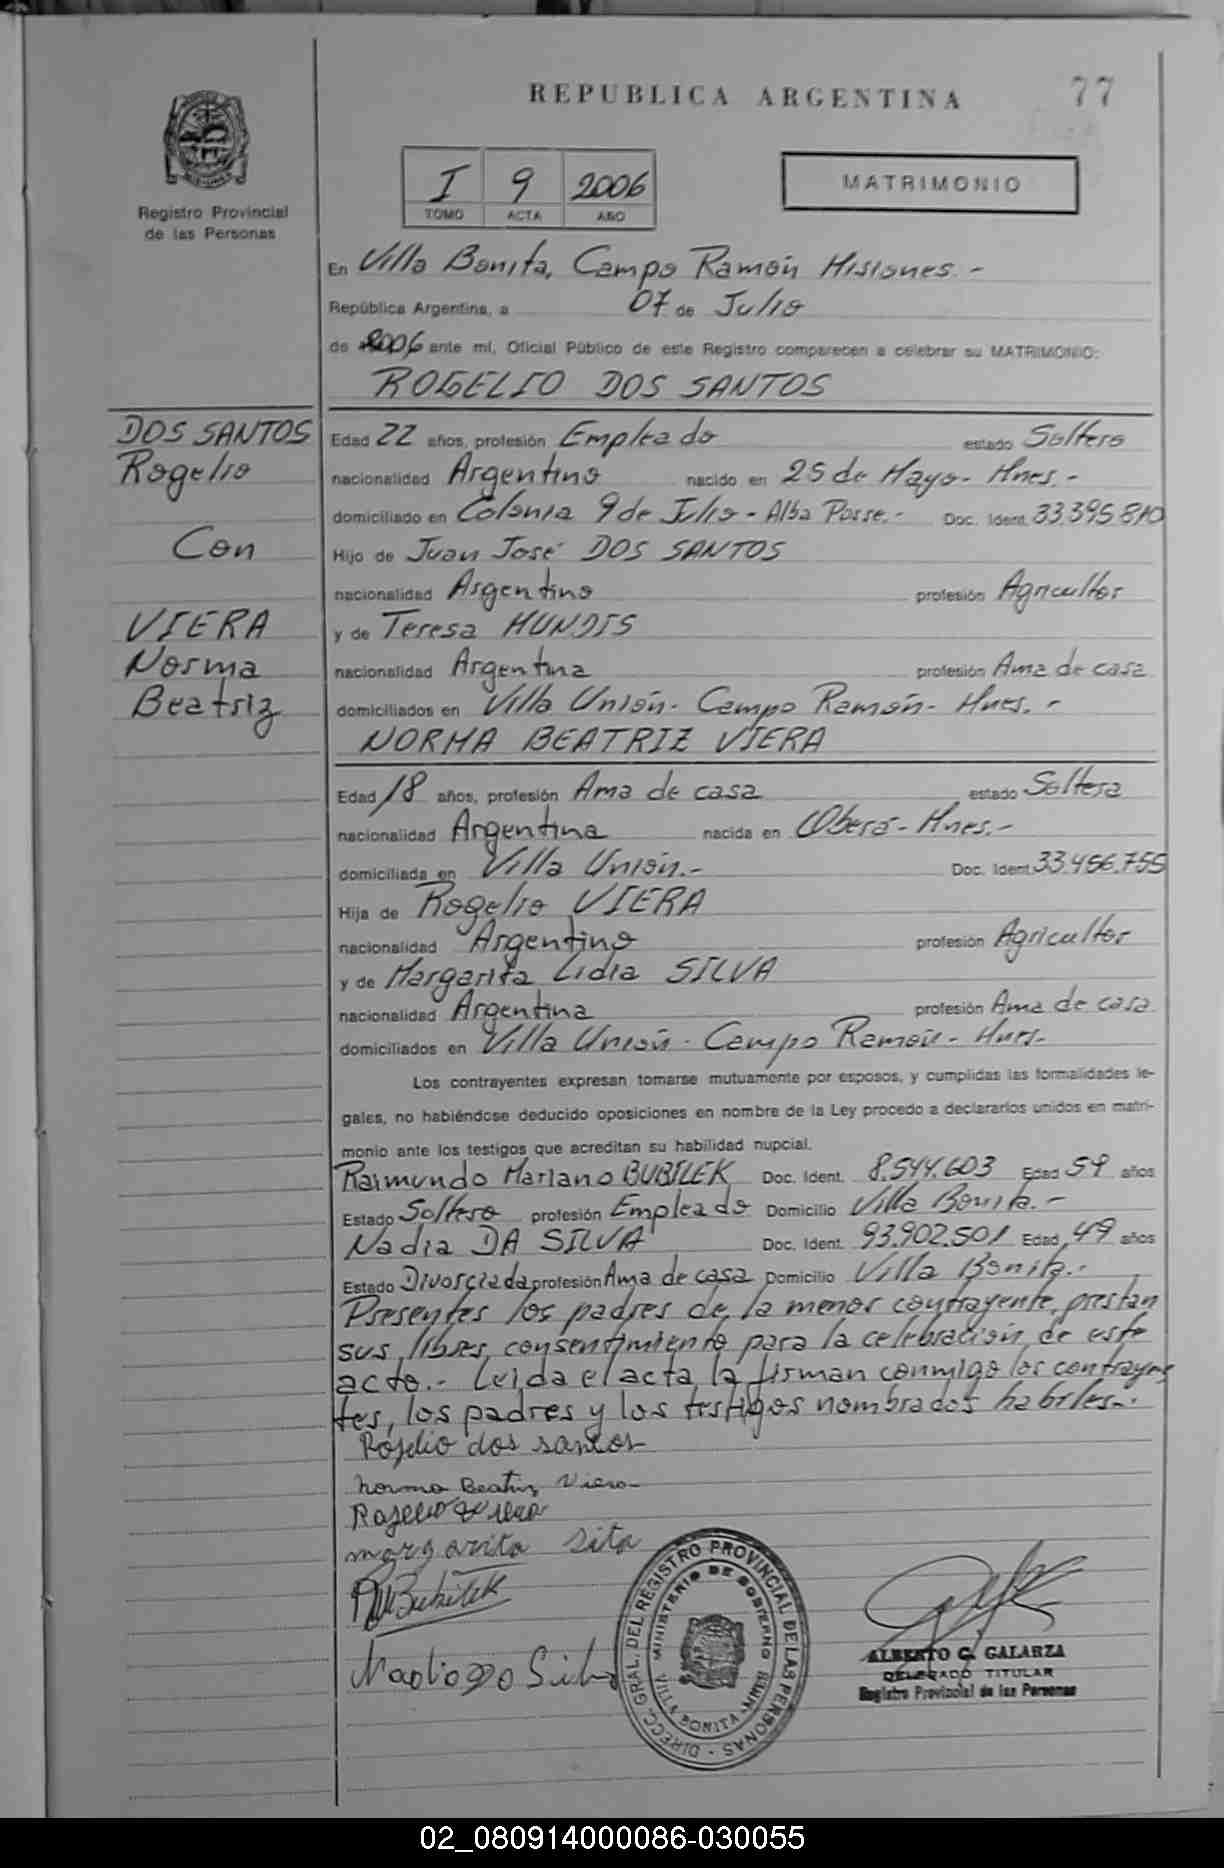 REPUBLICA ARGENTINA
77
Registro Provincial
de las Personas
I 9 2006
TOMO ACTA AÑO
MATRIMONIO
En Villa Bonita, Campo Ramón Misiones.-
República Argentina, a 07 de Julio
de 2006 ante mí, Oficial Público de este Registro comparecen a celebrar su MATRIMONIO:
ROGELIO DOS SANTOS
DOS SANTOS
Rogelio
Con
VIERA
Norma
Beatriz
Edad 22 años, profesión Empleado estado Soltero
nacionalidad Argentino nacido en 25 de Mayo- Mnes.-
domiciliado en Colonia 9 de Julio - Alba Posse.- Doc. Ident. 33.395.810
Hijo de Juan José DOS SANTOS
nacionalidad Argentino profesión Agricultor
y de Teresa HUNDIS
nacionalidad Argentina profesión Ama de casa
domiciliados en Villa Unión- Campo Ramón- Mnes.-
NORMA BEATRIZ VIERA
Edad 18 años, profesión Ama de casa estado Soltera
nacionalidad Argentina nacida en Oberá- Mnes.-
domiciliada en Villa Unión.- Doc. Ident. 33.456.755
Hija de Rogelio VIERA
nacionalidad Argentino profesión Agricultor
y de Margarita Lidia SILVA
nacionalidad Argentina profesión Ama de casa
domiciliados en Villa Unión- Campo Ramón- Mnes-
Los contrayentes expresan tomarse mutuamente por esposos, y cumplidas las formalidades le-
gales, no habiéndose deducido oposiciones en nombre de la Ley procedo a declararlos unidos en matri-
monio ante los testigos que acreditan su habilidad nupcial.
Raimundo Mariano BUBILEK Doc. Ident. 8.544.603 Edad 59 años
Estado Soltero profesión Empleado Domicilio Villa Bonita.-
Nadia DA SILVA Doc. Ident. 93.902.501 Edad 49 años
Estado Divorciada profesión Ama de casa Domicilio Villa Bonita.-
Presentes los padres de la menor contrayente, prestan
sus libres consentimiento para la celebración de este
acto.- Leida el acta la firman conmigo los contrayen
tes, los padres y los testigos nombrados habiles.-
Rogelio dos santos
Norma Beatriz Viera
Rogelio Viera
margarita Silva
RM Bubilek
DIRECC. GRAL. DEL REGISTRO PROVINCIAL DE LAS PERSONAS
MINISTERIO DE GOBIERNO
VILLA BONITA - MNES
ALBERTO G. GALARZA
DELEGADO TITULAR
Registro Provincial de las Personas
02_080914000086-030055